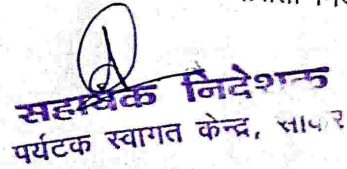 सहायक निदेशक
पर्यटक स्वागत केन्द्र,